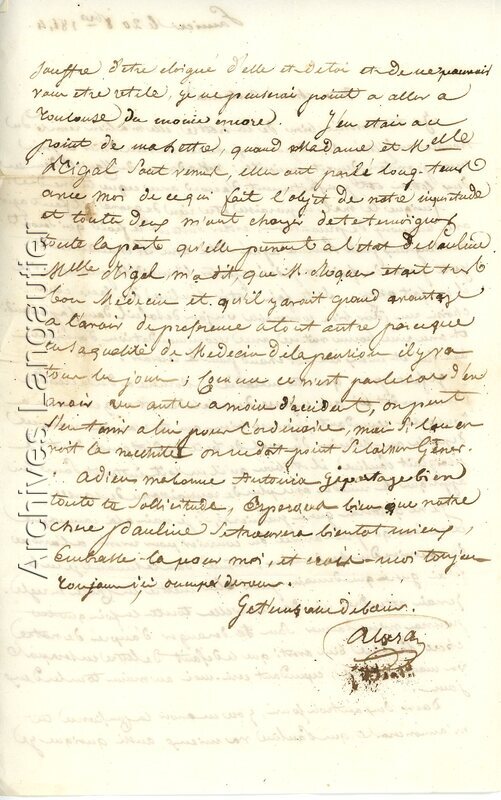 souffre d'etre eloigné d'elle et de toi et de ne pouvoir
vous etre utile, je ne penserai point a aller a
toulouse du moins encore. J'en etais a ce
point de ma lettre, quand Madame et Melle
Rigal sont venues, elle ont parlé long-tems
avec moi de ce qui fait l'objet de notre inquietude
et toutes deux m'ont chargé de te temoigner
toute la part qu'elle prenent a l'etat de Pauline
Melle Rigal m'a dit, que M. etait tres
bon Medecin et qu'il y avoit grand avantage
a l'avoir de preference a tout autre parceque
en sa qualité de Medecin de la pension il y va
tous les jours; Comme ce n'est pas le cas d'en
avoir un autre a moins d'accident, on peut
s'en tenir a lui pour l'ordinaire, mais si l'on en
voit la necessité on ne doit point se laisser Gèner.
Adieu ma bonne Antonia je partage bien
toute ta sollicitude, Esperons bien que notre
chere Pauline se trouvera bientot mieux,
Embrasse-la pour moi, et crois-moi toujours
toujours ici occupé de vous.
Je t'embrasse de bon coeur.
Archives Langautier